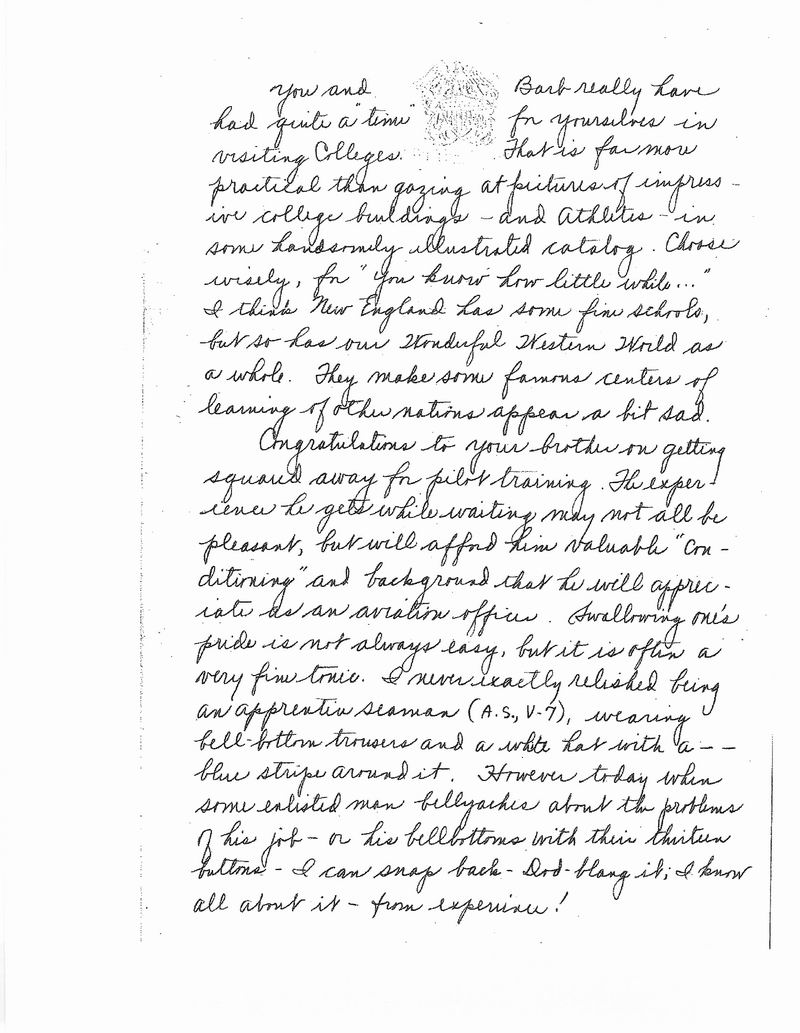 You and Barb really have
had quite a "time" for yourselves in
visiting Colleges. That is far more
practical than gazing at pictures of impress-
ive college buildings - and Athletes - in
some handsomely illustrated catalog. Choose
wisely, for "you know how little while..."
I think New England has some fine schools,
but so has our Wonderful Western World as
a whole. They make some famous centers of
learning of other nations appear a bit sad.
Congratulations to your brother on getting
squared away for pilot training. The exper-
ience he gets while waiting may not all be
pleasant, but will afford him valuable "con-
ditioning" and background that he will apprec-
iate as an aviation officer. Swallowing one's
pride is not always easy, but it is often a
very fine tonic. I never exactly relished being
an apprentice seaman (A.S., V-7), wearing
bell-bottom trousers and a white hat with a - -
blue stripe around it. However today when
some enlisted man bellyaches about the problems
of his job - or his bellbottoms with their thirteen
buttons - I can snap back - Dod-blang it; I know
all about it - from experience!